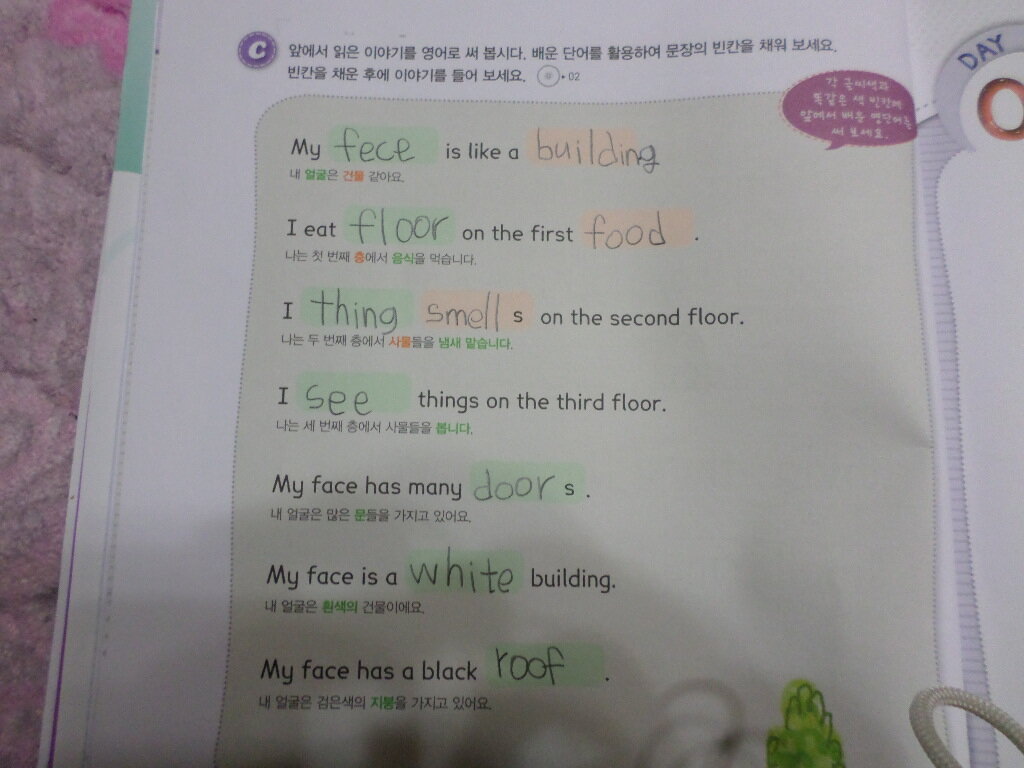 C 앞에서 읽은 이야기를 영어로 써 봅시다. 배운 단어를 활용하여 문장의 빈칸을 채워 보세요.
빈칸을 채운 후에 이야기를 들어 보세요. 02
각 글씨색과
똑같은 색 빈칸에
앞에서 배운 영단어를
써 보세요.
My fece is like a building
내 얼굴은 건물 같아요.
I eat floor on the first food .
나는 첫 번째 층에서 음식을 먹습니다.
I thing smell s on the second floor.
나는 두 번째 층에서 사물들을 냄새 맡습니다.
I see things on the third floor.
나는 세 번째 층에서 사물들을 봅니다.
My face has many door s .
내 얼굴은 많은 문들을 가지고 있어요.
My face is a white building.
내 얼굴은 흰색의 건물이에요.
My face has a black roof .
내 얼굴은 검은색의 지붕을 가지고 있어요.
DAY
0